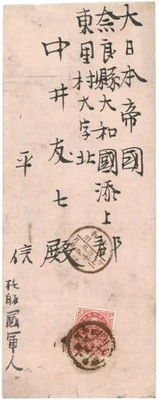 大日本帝國
奈良縣大和國添上郡
東里村大字北
中井友七殿
平信
國軍人